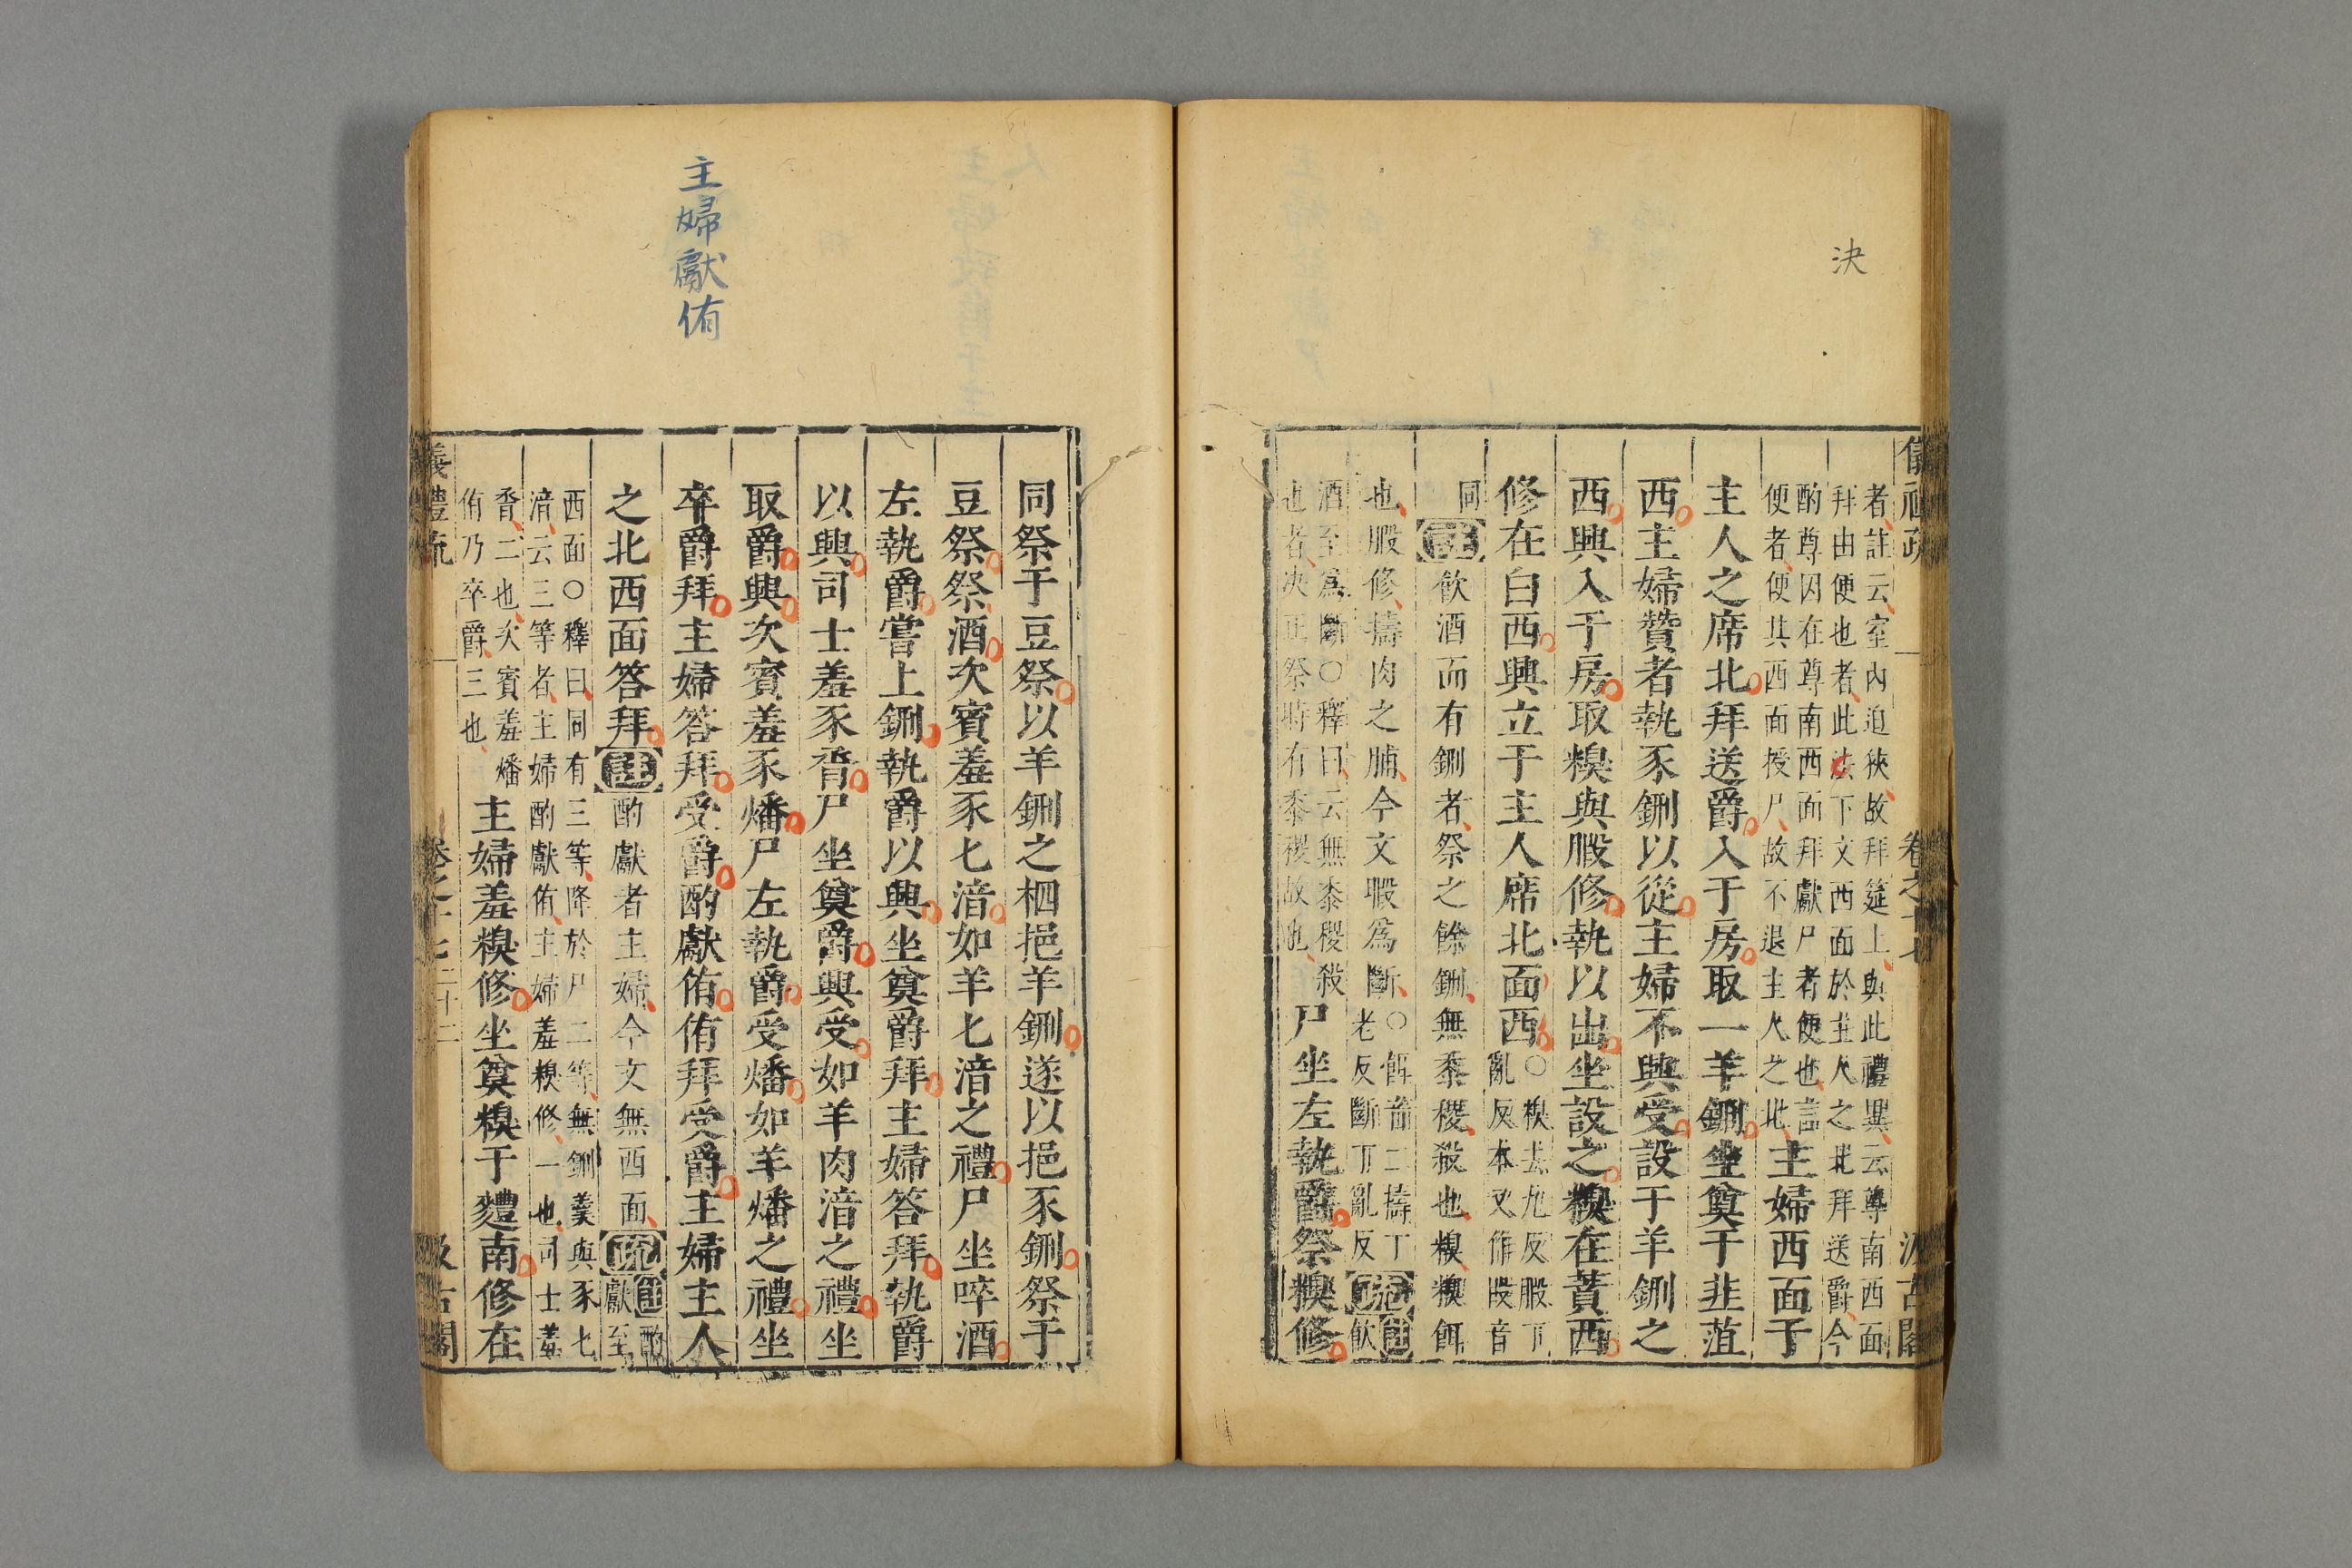 決
者註云室內迫狹故拜筵上與此禮異云尊南西面
拜由便也者此法下文西面於主人之北拜送爵今
酌尊因在尊南西面拜獻尸者便也言
便者便其西面授尸故不退主人之北主婦西面于
主人之席北拜送爵入于房取一羊鉶坐奠于韭菹
西主婦贊者執豕鉶以從主婦不興受設于羊鉶之
西興入于房取糗與腶修執以出坐設之糗在蕡西
修在白西興立于主人席北面西
○糗去九反腶丁
亂反本又作段音
同註飲酒而有鉶者祭之餘鉶無黍稷殺也糗糗餌
也腶修擣肉之脯今文腶為斷
○餌音二擣丁
老反斷丁亂反
疏註飲
酒至為斷○釋曰云無黍稷殺
也者決正祭時有黍稷故也
尸坐左執爵祭糗修
主婦獻侑
同祭于豆祭以羊鉶之柶挹羊鉶遂以挹豕鉶祭于
豆祭祭酒次賓羞豕匕湆如羊匕湆之禮尸坐啐酒
左執爵嘗上鉶執爵以興坐奠爵拜主婦答拜執爵
以興司士羞豕脀尸坐奠爵興受如羊肉湆之禮坐
取爵興次賓羞豕燔尸左執爵受燔如羊燔之禮坐
卒爵拜主婦答拜受爵酌獻侑侑拜受爵主婦主人
之北西面答拜註酌獻者主婦今文無西面疏註酌
獻至
西面○釋曰同有三等降於尸二等無鉶羹與豕匕
湆云三等者主婦酌獻侑主婦羞糗修一也司士羞
脀二也次賓羞燔
侑乃卒爵三也
主婦羞糗修坐奠糗于麷南修在